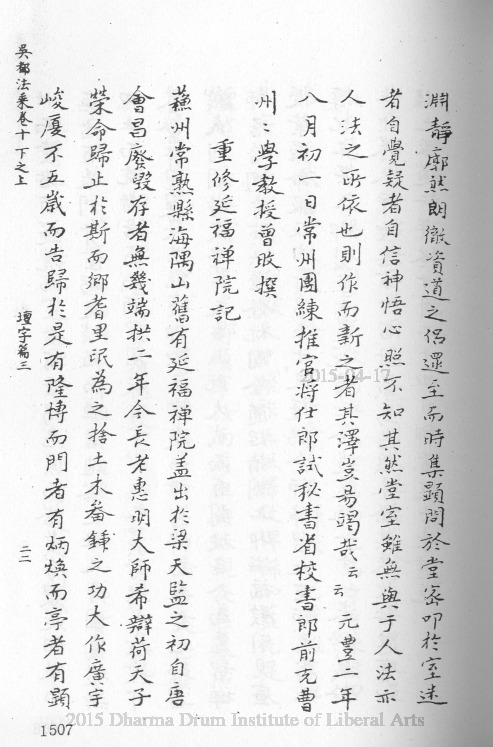 淵靜廓然朗徹資道之侶還至而時集顯問於堂密叩於室迷
者自覺疑者自信神悟心照不知其然堂室雖無與于人法亦
人法之所依也則作而新之者其澤豈易竭哉云云元豐二年
八月初一日常州團練推官將仕郎試秘書省校書郎前充曹
州州學教授曾旼撰
重修延福禅院記
蘓州常熟縣海隅山舊有延福禅院盖出於梁天監之初自唐
會昌廢毀存者無幾端拱二年今長老惠明大師希辯荷天子
榮命歸止於斯而鄉耆里氓為之捨土木畚鍤之功大作廣宇
峻厦不五歲而告歸於是有隆博而門者有炳煥而亭者有顯
吳都法乘卷十下之上
壇字篇三
二二
1507
2015-04-17
2015 Dharma Drum Institute of Liberal Arts